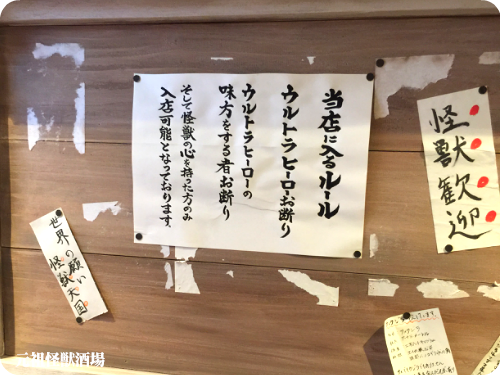 当店に入るルール
ウルトラヒーローお断り
ウルトラヒーローの
味方をする者お断り
そして怪獣の心を持った方のみ
入店可能となっております。
怪獣歓迎
世界の願い
怪獣天国
元祖怪獣酒場